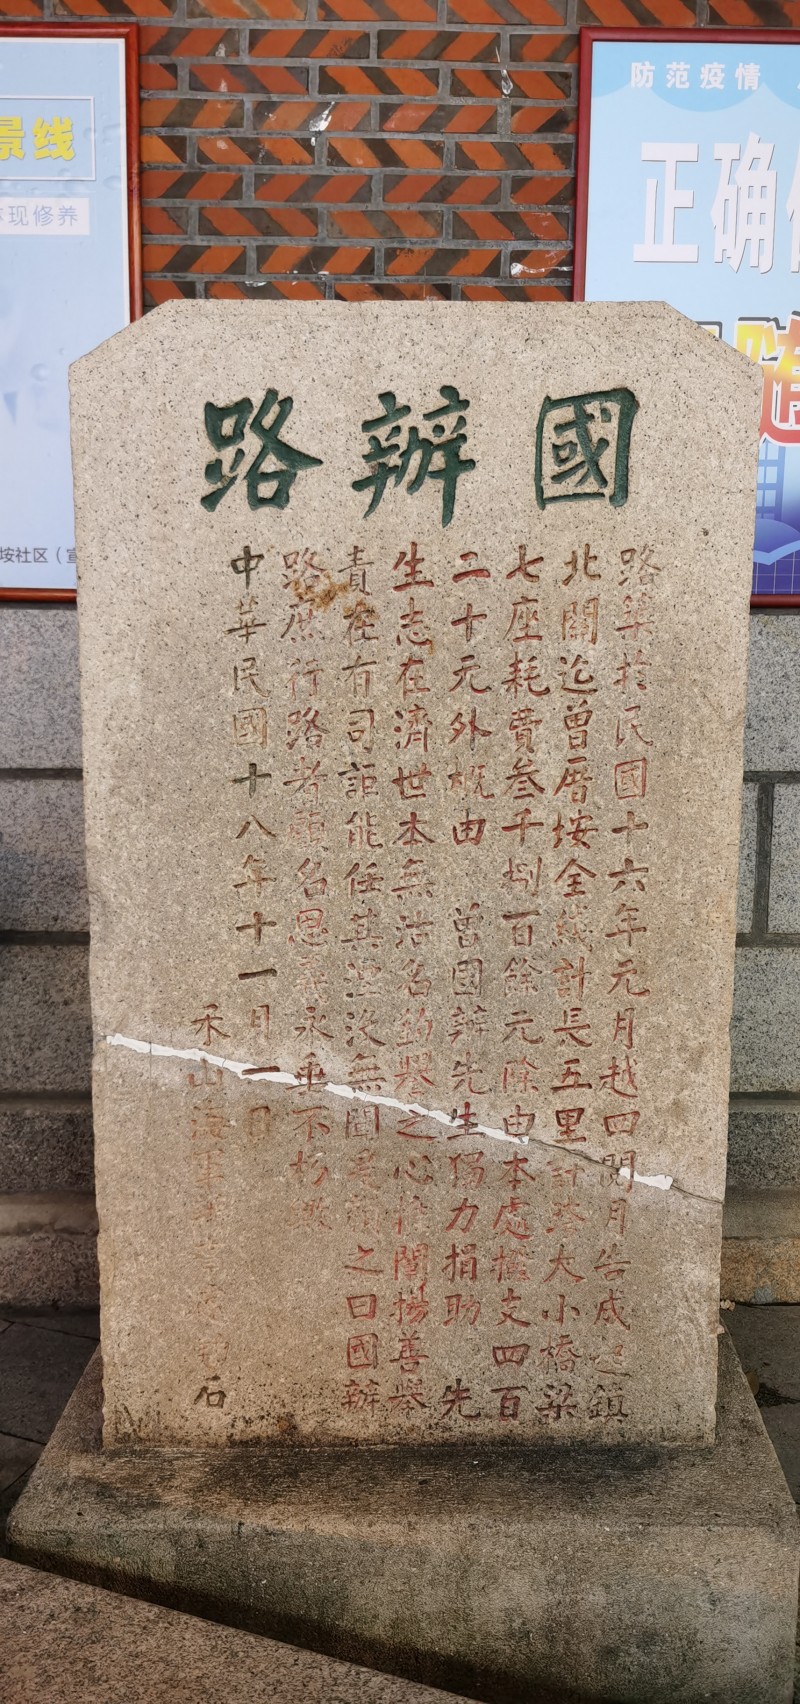 景线
现修养
垵社区（宣
防范疫情
正确
國辦路
路築於民國十六年元月越四閱月告成起鎮
北關迄曾厝垵全綫計長五里計跨大小橋梁
七座耗費叁千捌百餘元除由本處撥支四百
二十元外概由 曾國辦先生獨力捐助 先
生志在濟世本無沽名釣譽之心惟闡揚善舉
責在有司詎能任其湮沒無聞爰顏之曰國辦
路庶行路者顧名思義永垂不朽歟
中華民國十八年十一月一日
禾山海軍石